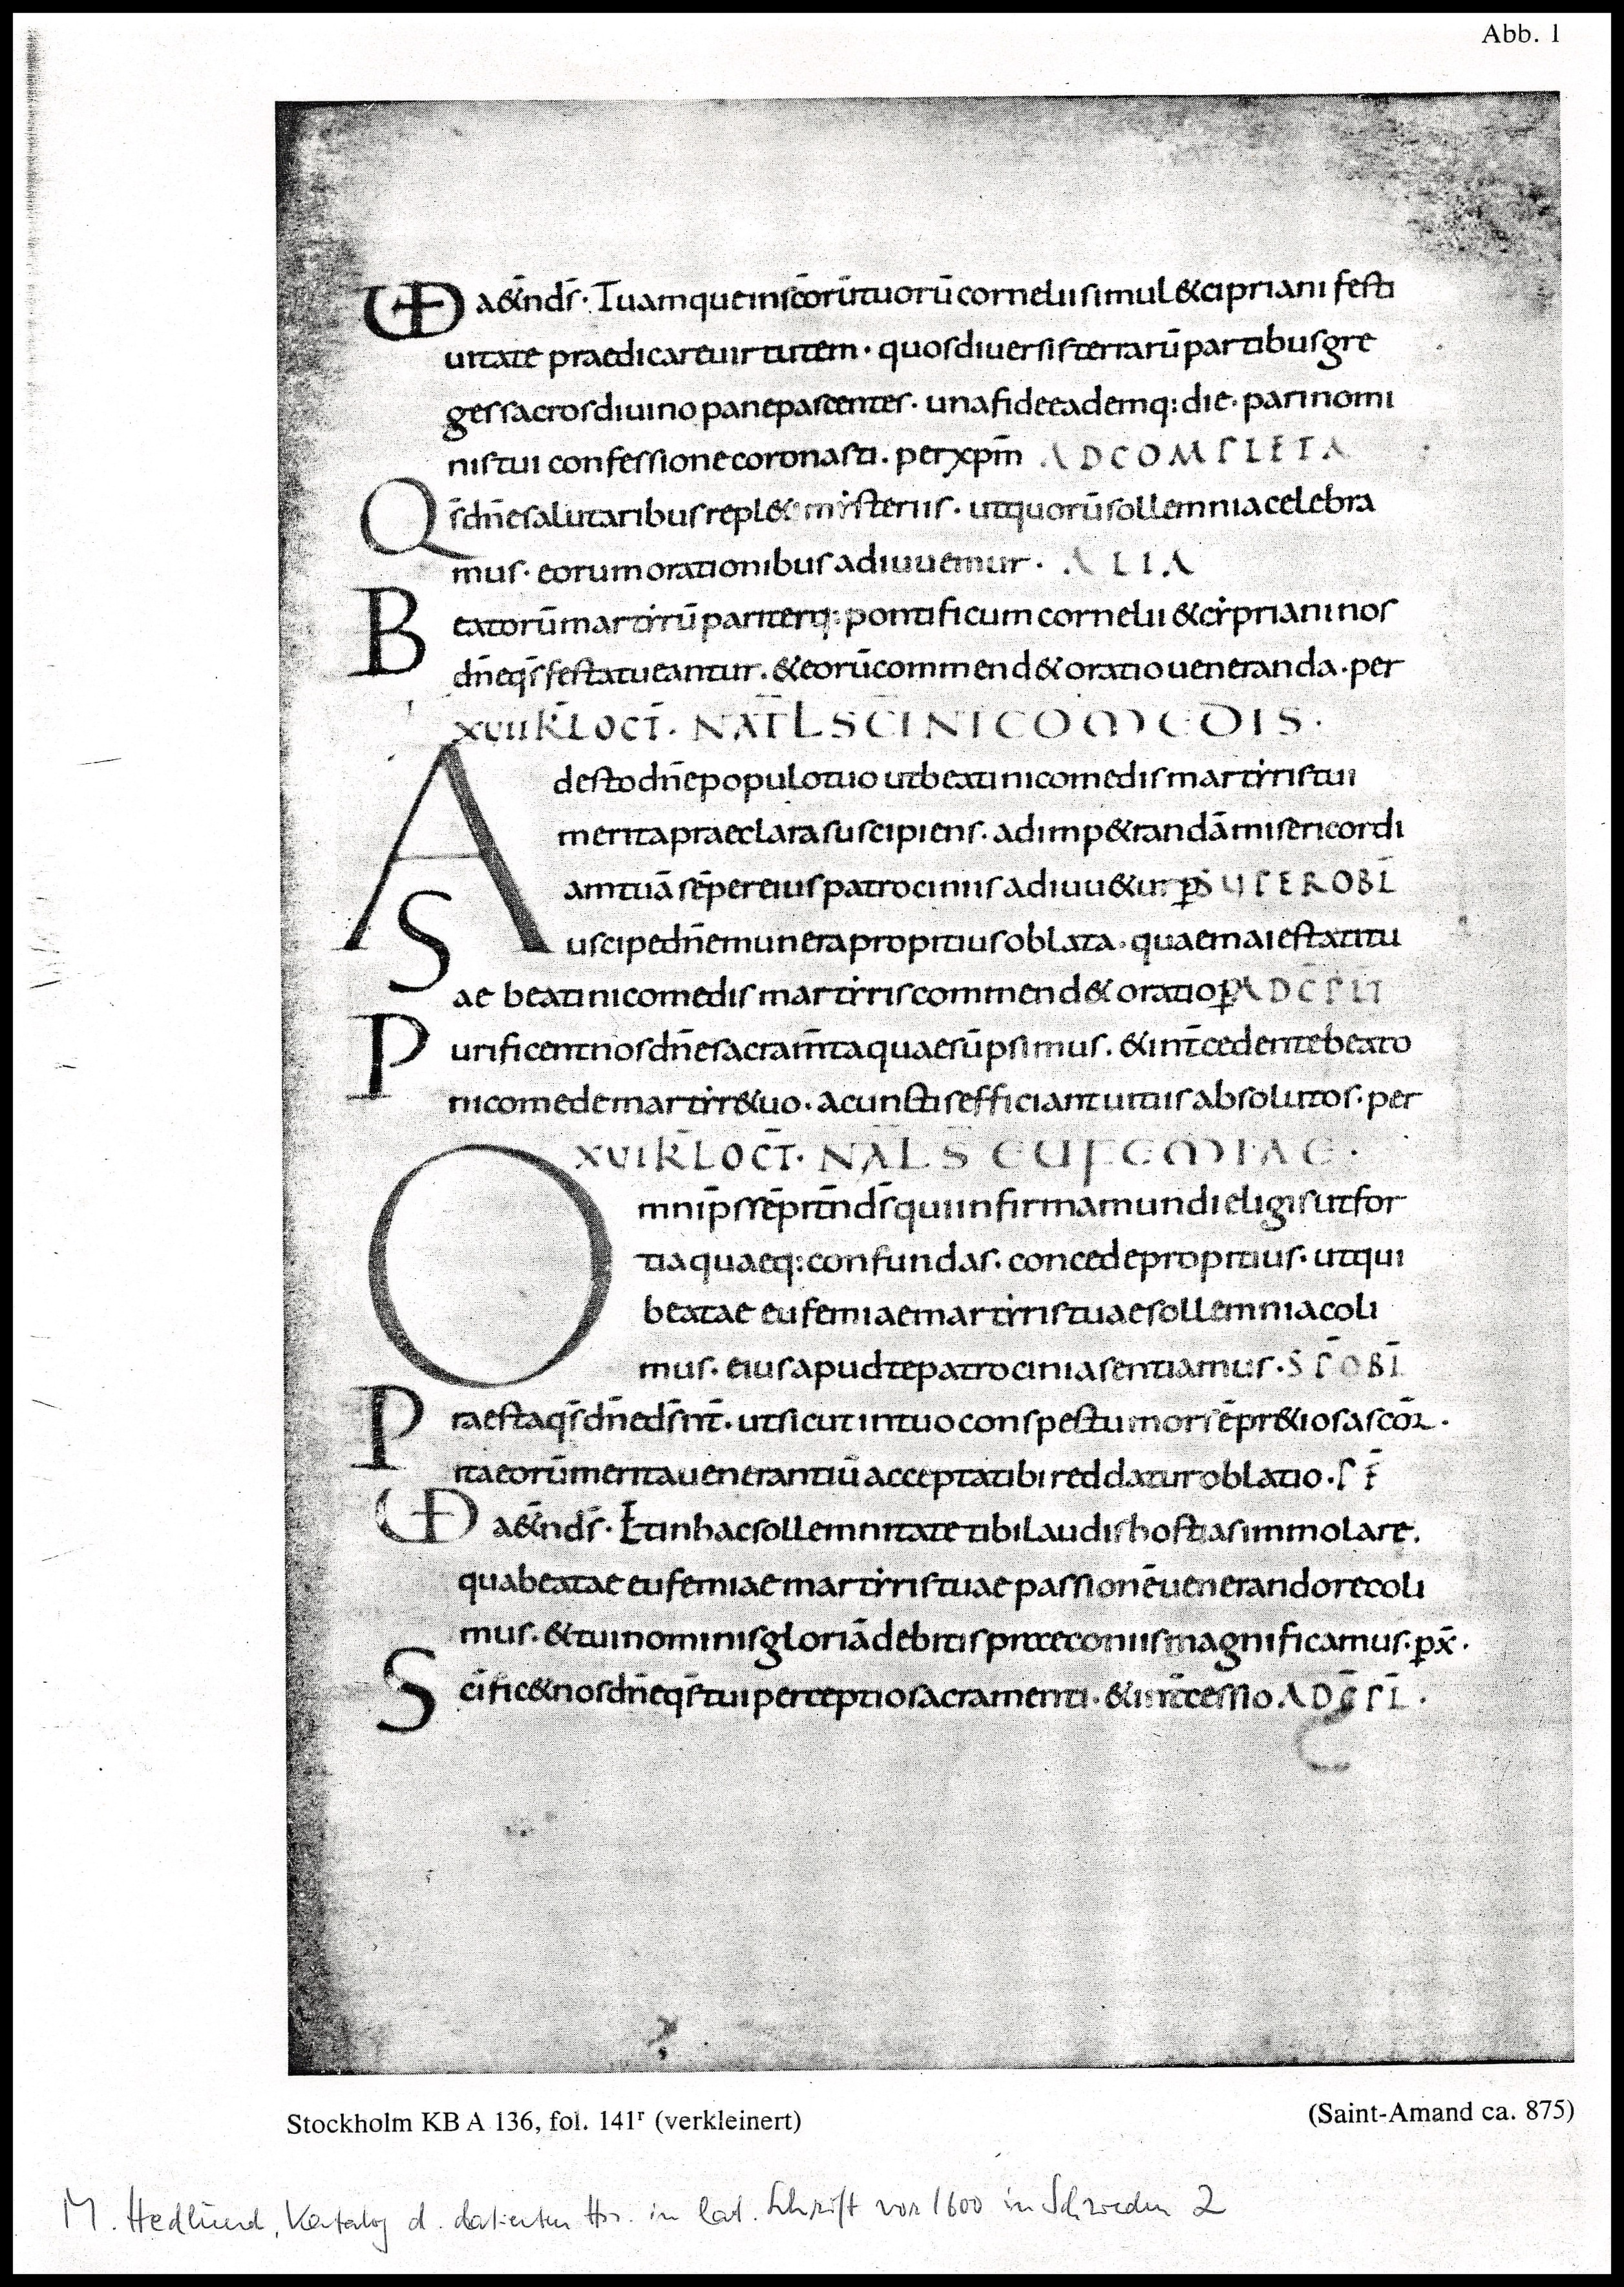 Abb. 1
VD aet̄nds̄· Tuamque in sc̄orū tuorū cornelii simul & cipriani festi
uitate praedicare uirtutem · quos diuersis terrarū partibus gre
ges sacros diuino pane pascentes · una fide eademq: die · pari nomi
nis tui confessione coronasti . per xp̄m ADCOMPLETA
Qs̄ dn̄e salutaribus repl& mẏsteriis · ut quorū sollemnia celebra
mus · eorum orationibus adiuuemur · ALIA
Beatorū martẏrū pariterq: pontificum cornelii & cẏpriani nos
dn̄e qs̄ festa tueantur . & eorū commend& oratio ueneranda · per
XVII KL̄ OCT̄ . NAT̄L SC̄I NICOMEDIS ·
Adesto dn̄e populo tuo ut beati nicomedis martẏris tui
merita praeclara suscipiens · ad imp&randā misericordi
am tuā sēper eius patrociniis adiuu&ur p̱ SUPEROBL̄
Suscipe dn̄e munera propitius oblata · quae maiestati tu
ae beati nicomedis martẏris commend& oratio p̱ ADC̄PLT̄
Purificent nos dn̄e sacram̄ta quae sūpsimus . & int̄cedente beato
nicomede martẏr& uo · a cunctis efficiant uitiis absolutos · per
XVI KL̄ OCT̄· NAL̄ S EUFEMIAE ·
Omnip̄s sēpit̄n ds̄ qui infirma mundi eligis ut for
tia quaeq: confundas · concede propitius · ut qui
beatae eufemiae martẏris tuae sollemnia coli
mus · eius apud te patrocinia sentiamus · SPOBL̄
Praesta qs̄ dn̄e ds̄ nr̄t · ut sicut in tuo conspectu mors ē pr&iosa sc̄or̄ ·
ita eorū merita uenerantiū accepta tibi reddatur oblatio · PF̄
VD aet̄nds̄· Et in hac sollemnitate tibi laudis hostias immolare .
qua beatae eufemiae martẏris tuae passionē uenerando recoli
mus · & tui nominis gloriā debitis praeconiis magnificamus · p̱x̄ ·
Sc̄ific& nos dn̄e qs̄ tui perceptio sacramenti · & int̄cessio ADC̄PL̄ ·
Stockholm KB A 136, fol. 141ʳ (verkleinert)
(Saint-Amand ca. 875)
M. Hedlund, Katalog d. datierten Hss. in lat. Schrift vor 1600 in Schweden 2